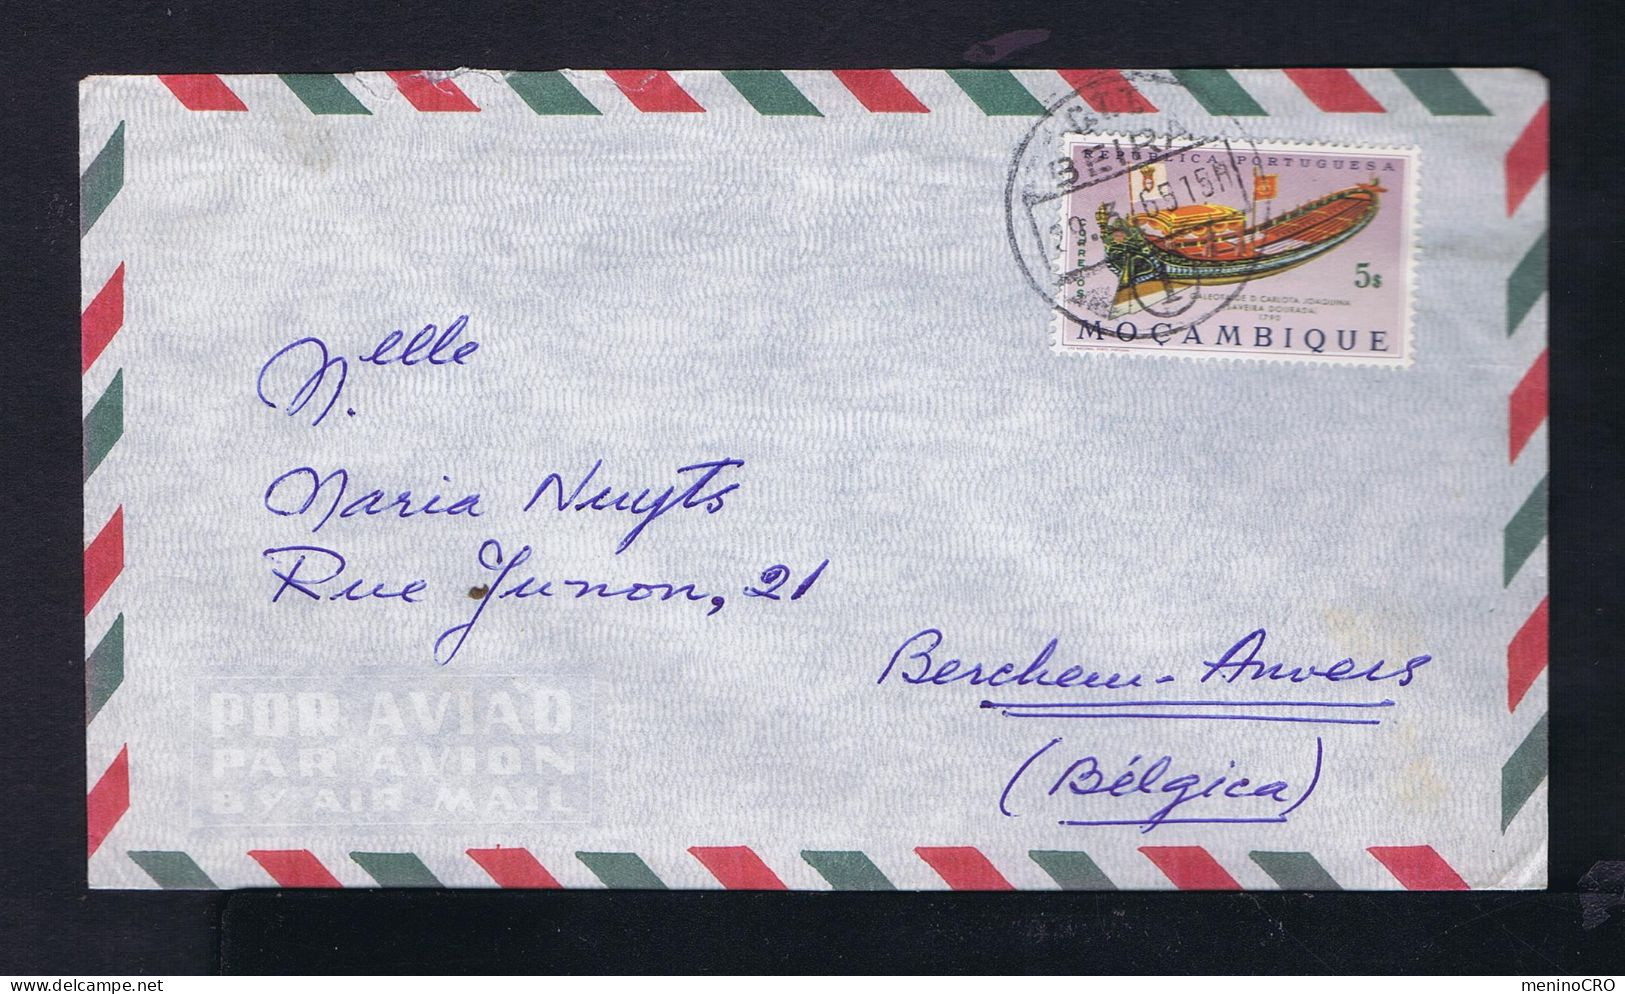 BEIRA
REPÚBLICA PORTUGUESA
CORREIOS
5$
GALEOTA DE D. CARLOTA JOAQUINA
(SAVEIRA DOURADA)
1790
MOÇAMBIQUE
M.elle
Maria Nuyts
Rue Junon, 21
Berchem-Anvers
(Bélgica)
POR AVIÃO
PAR AVION
BY AIR MAIL
meninoCRO